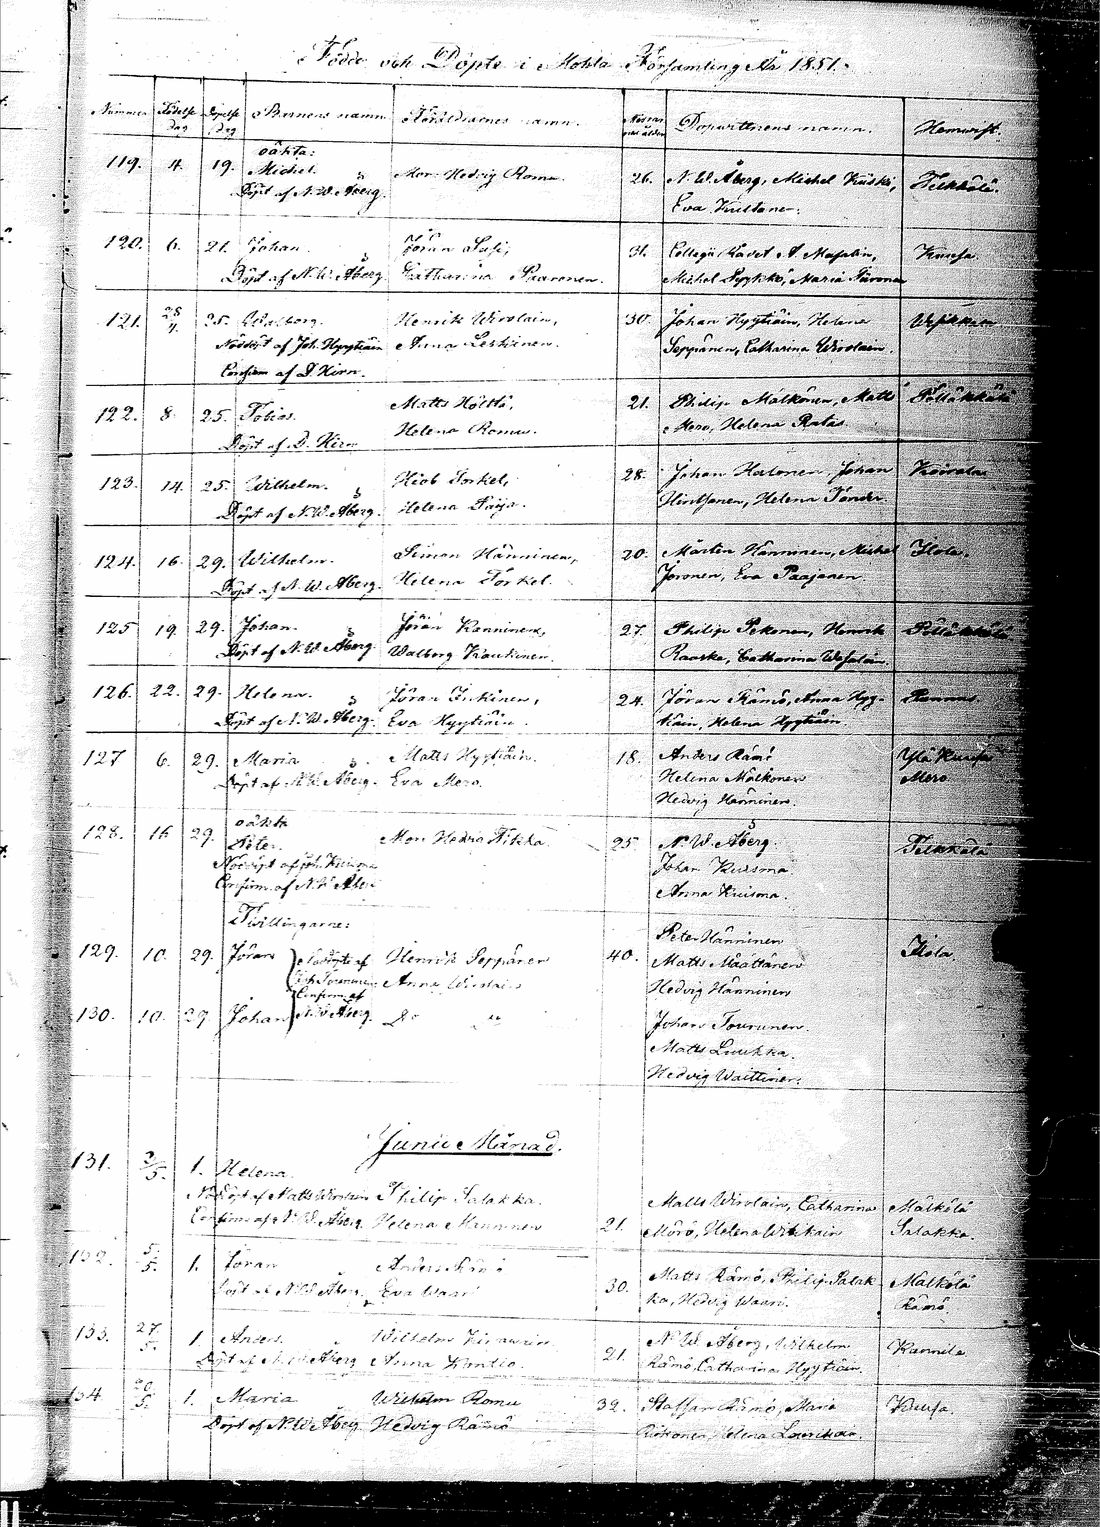 Födde och Döpte i Mohla Församling År 1851.
Nummer Födelse dag Döpelse dag Barnens namn. Föräldrarnes namn. Dopvittnens namn. Hemvist.
119. 4. 19. oäkta: Michel. Mor: Hedvig Romu. 26. N. W. Åberg, Michel Telkkälä.
Döpt af N. W. Åberg. Eva Kultanen.
120. 6. 21. Johan. Jöran Suli, 31. Kuusa.
Döpt af N. W. Åberg. Catharina Paavonen. Michel Pyykkö, Maria
121. 28/4. 25. Walborg. Henrik Wirolain, 30. Johan Hyytiäin, Helena
Nöddöpt af Joh. Hyytiäin Anna Leskinen. Seppänen, Catharina Wirolain.
Confirm af D. Hirn.
122. 8. 25. Tobias. Matts Höltta, 21. Philip Mälkönen, Matts Pölläkkälä
Döpt af D. Hirn Helena Romu. Mero, Helena Ratas.
123. 14. 25. Wilhelm. Hiob Torkel, 28. Johan Halonen, Johan
Döpt af N. W. Åberg. Helena Häntsonen, Helena
124. 16. 29. Wilhelm. Simon Hänninen, 20. Mårten Hänninen, Michel Ilola.
Döpt af N. W. Åberg. Helena Torkel. Joronen, Eva Paajanen
125 19. 29. Johan. Jöran Kanninen, 27. Philip Pekonen, Henrik Pölläkkälä
Döpt af N. W. Åberg. Walborg Kaukinen. Raaska, Catharina
126. 22. 29. Helena. Jöran Inkinen, 24. Jöran Rämö, Anna Hyy-
Döpt af N. W. Åberg. Eva Hyytiäin. tiäin, Helena Hyytiäin.
127 6. 29. Maria Matts Hyytiäin. 18. Anders Rämö Yläkuusa
Döpt af N. W. Åberg. Eva Mero. Helena Mälkönen Mero
Hedvig Hänninen.
128. 16 29. oäkta Peter. Mor: Hedvig Pikkä. 25 N. W. Åberg. Telkkälä
Nöddöpt af Joh. Kuisma Johan Kuisma.
Confirm. af N. W. Åberg Anna Kuisma.
Tvillingarne:
129. 10. 29. Jöran Nöddöpt af Henrik Seppänen 40. Peter Hänninen Ilola.
Joh. Tourunen Anna Wirolain Matts Määttänen
Confirm. af Hedvig Hänninen
130. 10. 29 Johan N. W. Åberg. Do " Johan Tourunen.
Matts Luukka.
Hedvig Waittinen.
Junii Månad.
131. 2/5. 1. Helena.
Nöddöpt af Matts Wirolain Philip Salakka. Matts Wirolain, Catharina Mälkölä
Confirm af N. W. Åberg Helena Manninen 21. Mörö, Helena Wihikain Salakka.
132. 5/5. 1. Jöran Anders Rämö 30. Matts Rämö, Philip Salak Mälkölä
Döpt af N. W. Åberg. Eva Waari ka, Hedvig Waari. Rämö.
133. 27/5. 1. Anders. Wilhelm 21. N. W. Åberg, Wilhelm Kannila
Döpt af N. W. Åberg Anna Kontio. Rämö, Catharina Hyytiäin.
134 20/5. 1. Maria Wilhelm Romu 32. Staffan Rämö, Maria Kuusa.
Döpt af N. W. Åberg Hedvig Rämö Helena